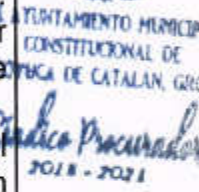 AYUNTAMIENTO MUNICIP
CONSTITUCIONAL DE
COYUCA DE CATALAN, GRO
Síndico Procurador
2018 - 2021